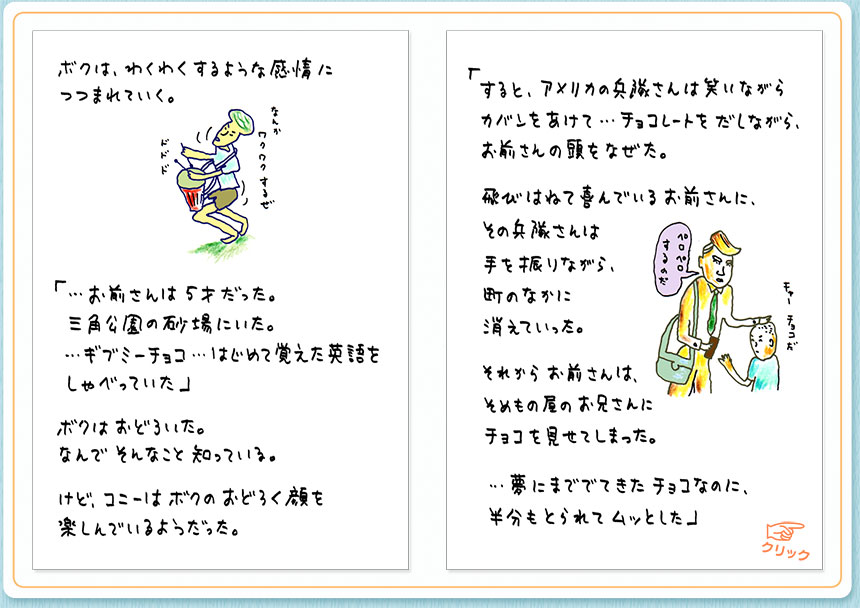 ボクは、わくわくするような感情に
つつまれていく。
なんか
ワクワクするぜ
だだだ
「…お前さんは5才だった。
三角公園の砂場にいた。
…ギブミーチョコ…はじめて覚えた英語を
しゃべっていた」
ボクはおどろいた。
なんでそんなこと知っている。
けど、コニーはボクのおどろく顔を
楽しんでいるようだった。
「すると、アメリカの兵隊さんは笑いながら
カバンをあけて…チョコレートをだしながら、
お前さんの頭をなぜた。
飛びはねて喜んでいるお前さんに、
その兵隊さんは
手を振りながら、
町のなかに
消えていった。
ペロペロ
するのだ
キャー チョコだ
それからお前さんは、
そめもの屋のお兄さんに
チョコを見せてしまった。
…夢にまででてきたチョコなのに、
半分もとられてムッとした」
クリック